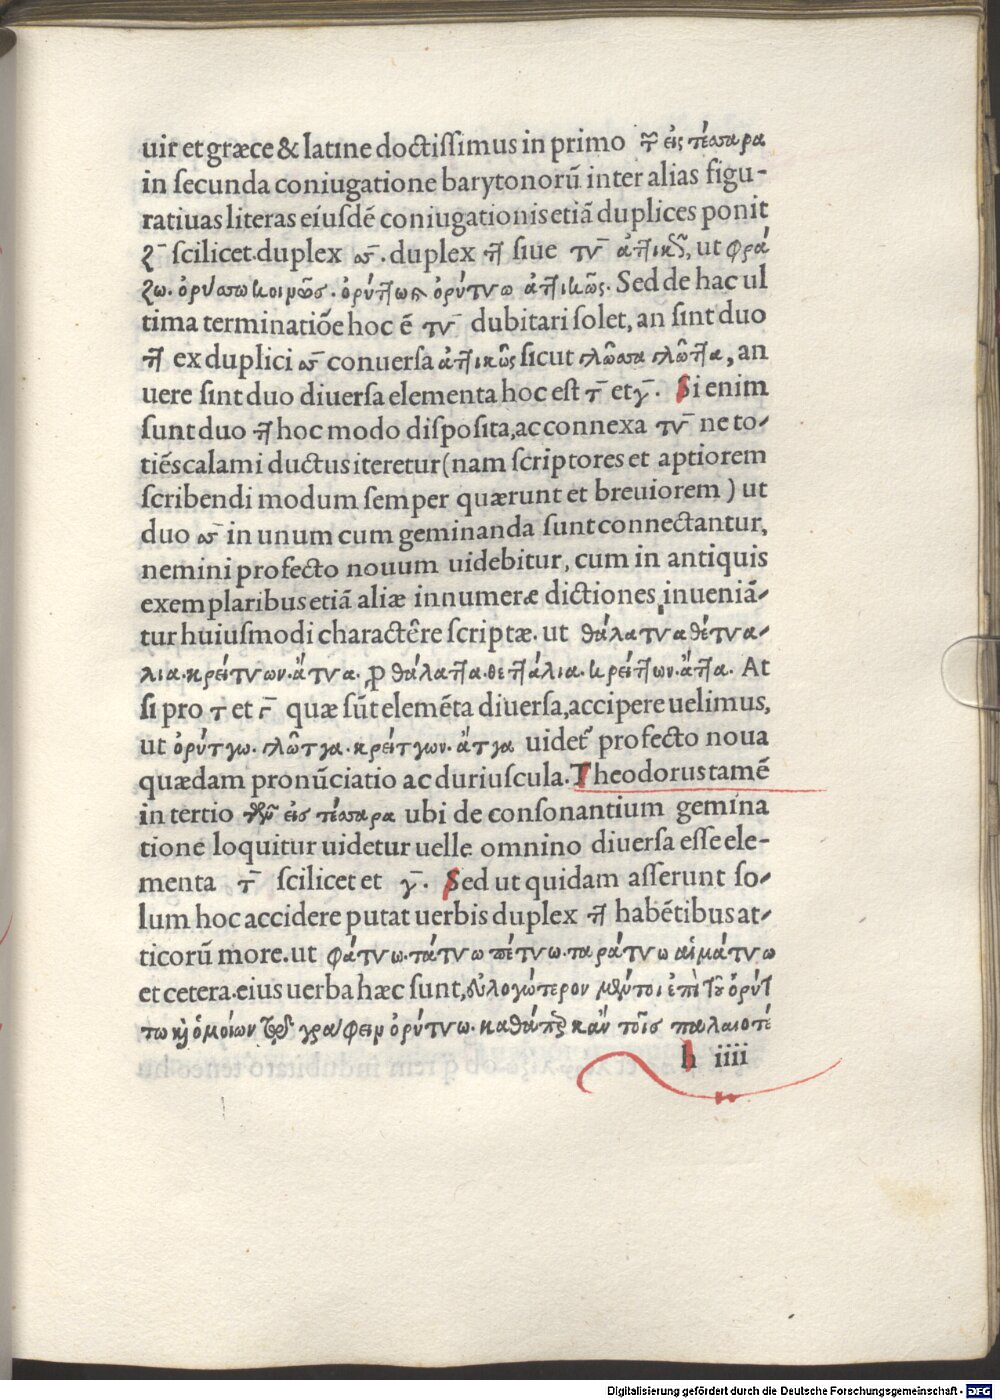 uir et græce & latine doctissimus in primo τῶν εἰς τέσσαρα
in secunda coniugatione barytonorū inter alias figu-
ratiuas literas eiusdē coniugationis etiā duplices ponit
ζ̄ scilicet. duplex σσ̄. duplex ττ̄ siue τγ̄ ἀττικῶς, ut φρά
ζω. ὀρύσσω κοινῶς. ὀρύττω & ὀρύτγω ἀττικῶς. Sed de hac ul
tima terminatiōe hoc ē τγ̄ dubitari solet, an sint duo
ττ̄ ex duplici σσ̄ conuersa ἀττικῶς sicut γλῶσσα γλῶττα, an
uere sint duo diuersa elementa hoc est τ̄ et γ̄. Si enim
sunt duo ττ̄ hoc modo disposita, ac connexa τγ̄ ne to-
tiēs calami ductus iteretur (nam scriptores et aptiorem
scribendi modum semper quærunt et breuiorem) ut
duo σσ̄ in unum cum geminanda sunt connectantur,
nemini profecto nouum uidebitur, cum in antiquis
exemplaribus etiā aliæ innumeræ dictiones inueniā-
tur huiusmodi charactēre scriptæ. ut θάλατγα θετγα-
λία. κρείτγων. ἄτγα. ꝓ θάλαττα. θετταλία. κρείττων. ἄττα. At
si pro τ et γ̄ quæ sūt elemēta diuersa, accipere uelimus,
ut ὀρύτγω. γλῶτγα. κρείτγων. ἄτγα uidet᷑ profecto noua
quædam pronūciatio ac duriuscula. Theodorus tamē
in tertio τῶν εἰς τέσσαρα ubi de consonantium gemina
tione loquitur uidetur uelle omnino diuersa esse ele-
menta τ̄ scilicet et γ̄. Sed ut quidam asserunt so-
lum hoc accidere putat uerbis duplex ττ̄ habētibus at-
ticorū more. ut φράτγω. τάτγω πέτγω. ταράτγω αἱμάτγω
et cetera. eius uerba hæc sunt, εὐλογώτερον μέντοι ἐπὶ τοῦ ὀρύτ
τω καὶ ὁμοίων τὸ γράφειν ὀρύτγω. καθάπερ κἀν τοῖς παλαιοτέ
h iiii
Digitalisierung gefördert durch die Deutsche Forschungsgemeinschaft - DFG